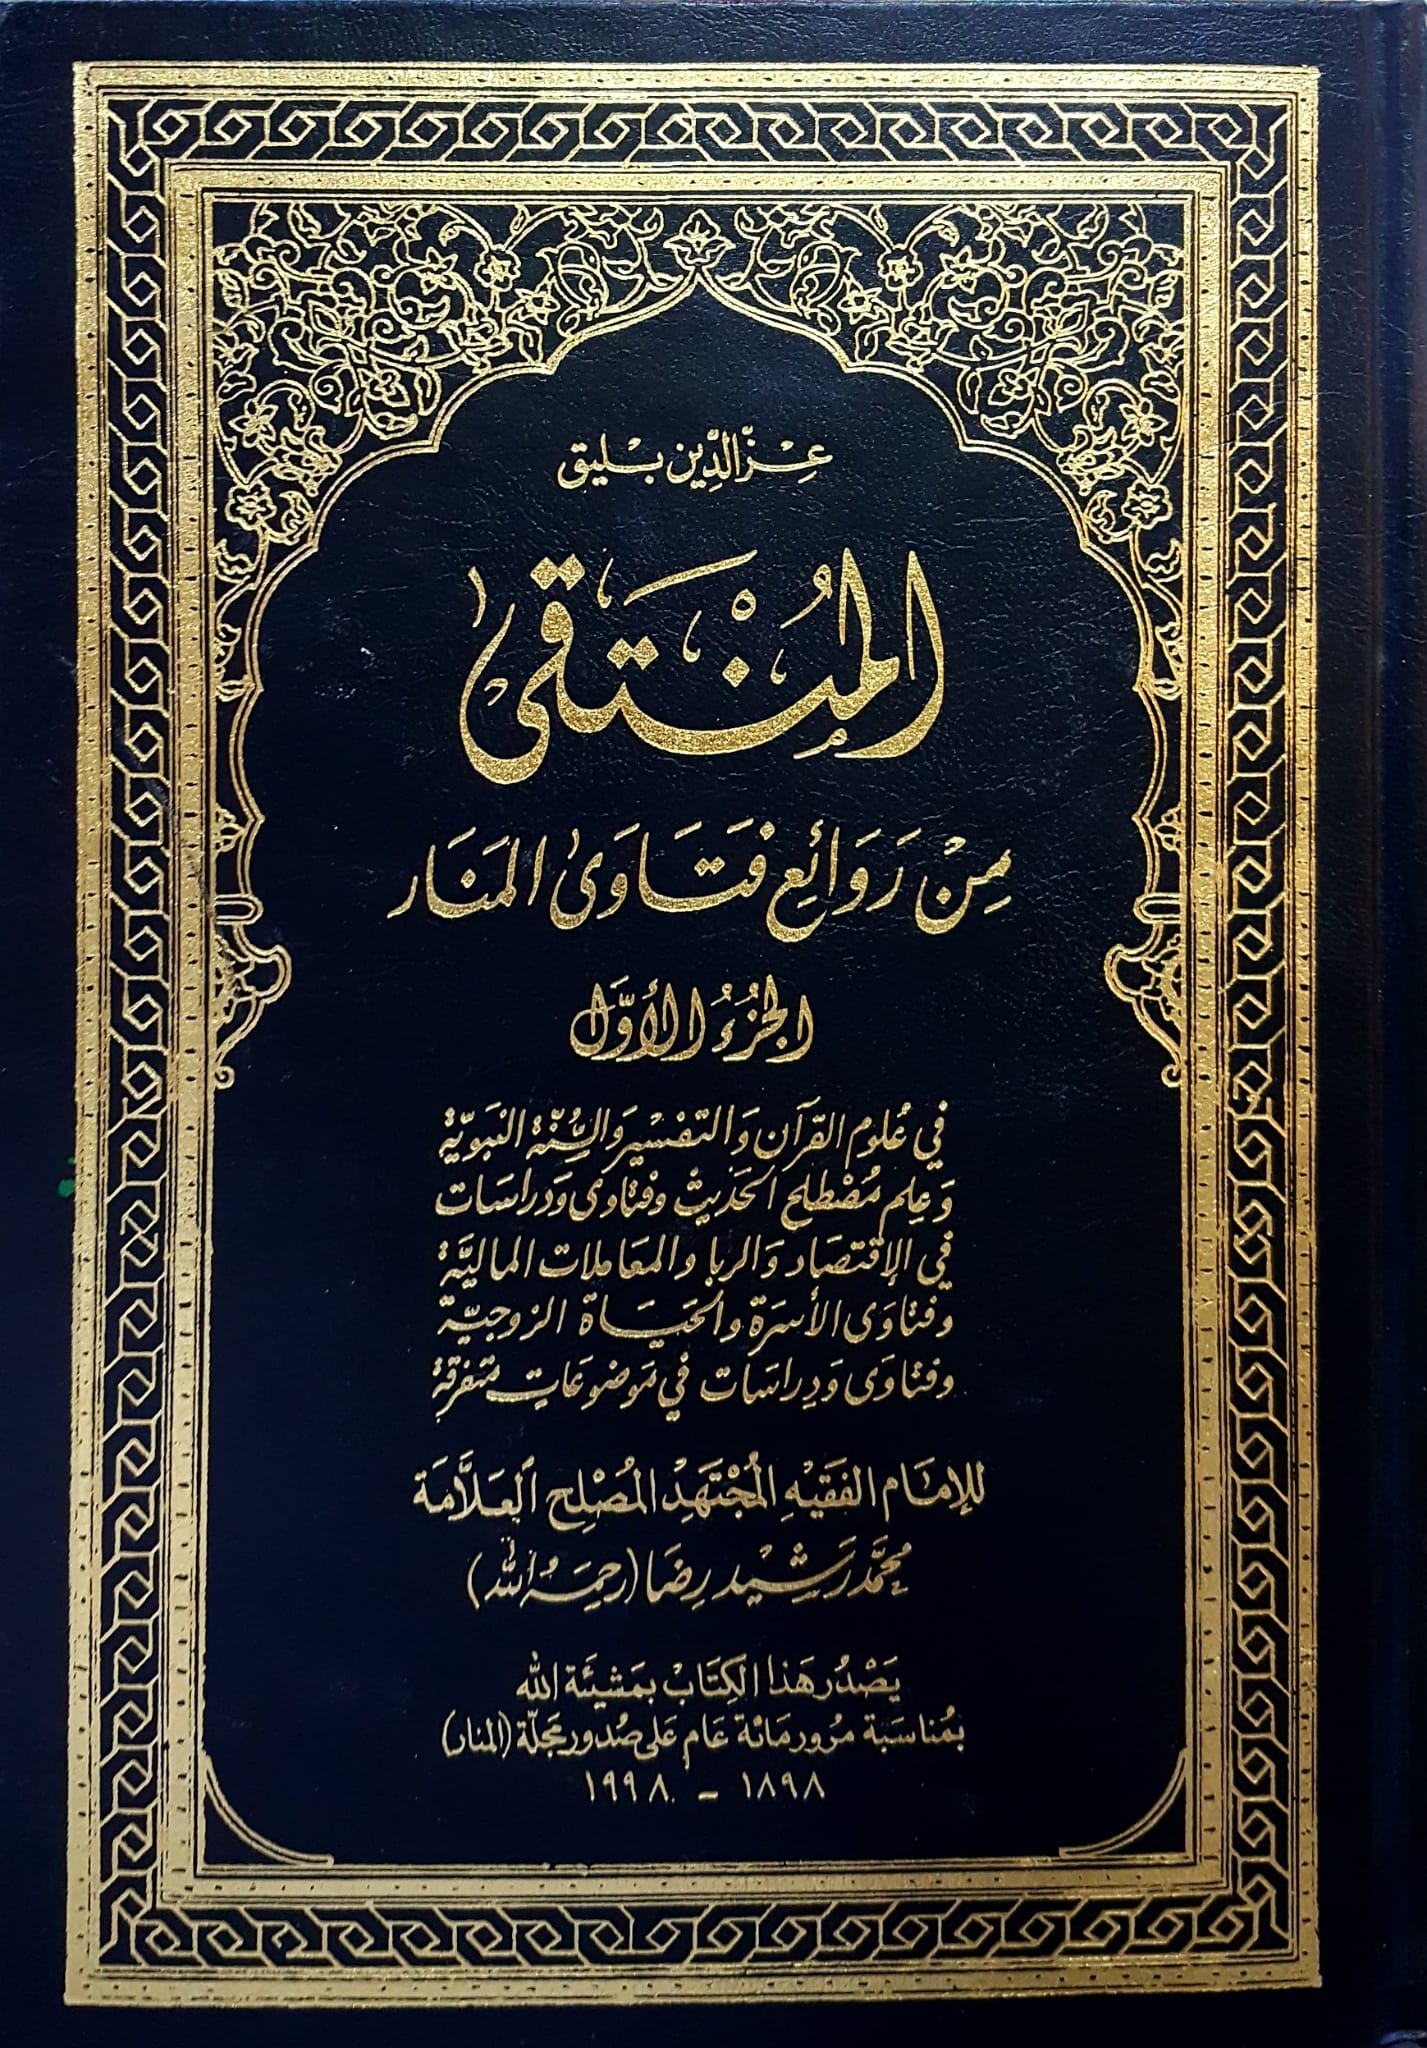 عِزّ الدِّين بليق
المُنْتَقىٰ
مِنْ رَوَائِع فَتَاوَىٰ المَنَار
الجُزْءُ الأَوَّل
في عُلوُم القُرآن وَالتفسْير وَالسُّنّة النبَويّة
وَعِلم مُصْطلح الحَديث وفتاوىٰ وَدراسَات
في الإقتصَاد وَالربا والمعَاملات الماليَّة
وفتاوَى الأسرَة والحَيَاة الزوجيّة
وفتاوَى وَدِراسَات في مَوضوعَات متفرقة
للإمَام الفَقيْه المُجْتَهِدْ المُصْلِح العَلاَّمَة
محمَّد رَشيْد رِضَا (رحِمَهُ الله)
يَصْدُر هَذا الكِتَابْ بمَشيئَة الله
بمُناسَبَة مرُور مَائة عَام عَلى صُدُور مَجلّة (المنار)
١٨٩٨ - ١٩٩٨